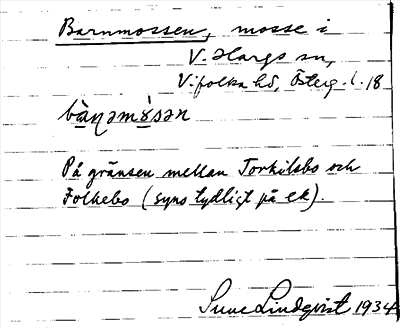 Barnmossen, mosse i
V. Hargs sn,
Vifolka hd, Österg. l. 18
bà̱ŋəmò̱sən
På gränsen mellan Torkilsbo och
Folkebo (syns tydligt på ek).
Sune Lindqvist 1934